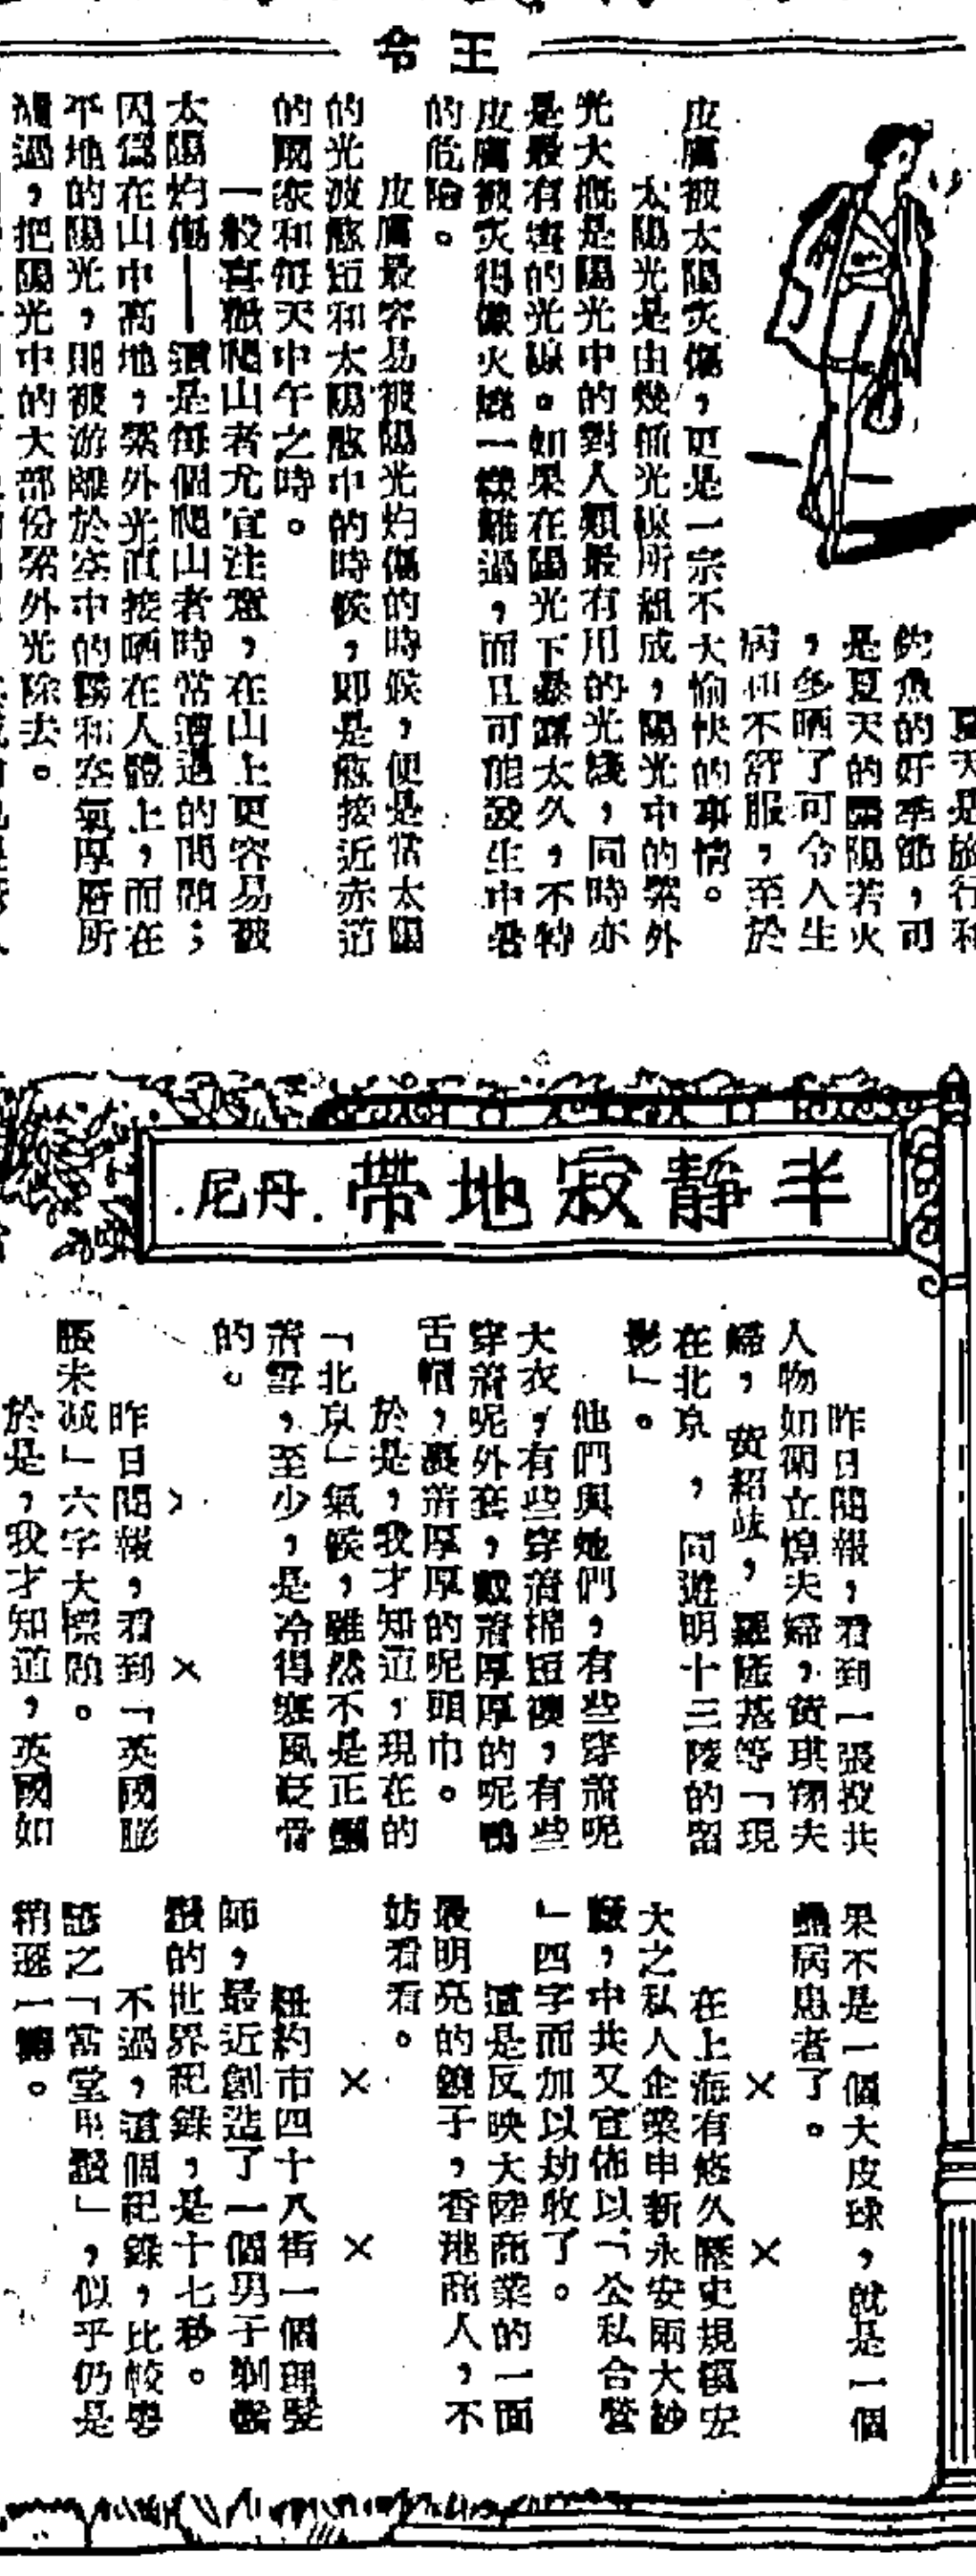 王令
夏天是旅行和
釣魚的好季節，可
是夏天的驕陽若火
，多晒了可令人生
病和不舒服，至於
皮膚被太陽炙傷，更是一宗不大愉快的事情。
太陽光是由幾種光線所組成，陽光中的紫外
光大概是陽光中的對人類最有用的光綫，同時亦
是最有害的光線。如果在陽光下暴露太久，不特
皮膚被炙得像火燒一樣難過，而且可能發生中暑
的危險。
皮膚最容易被陽光灼傷的時候，便是當太陽
的光波愈短和太陽愈中的時候，即是愈接近赤道
的國家和每天中午之時。
一般喜歡爬山者尤宜注意，在山上更容易被
太陽灼傷——這是每個爬山者時常遭遇的問題；
因為在山中高地，紫外光直接晒在人體上，而在
平地的陽光，則被游離於空中的霧和空氣厚層所
濾過，把陽光中的大部份紫外光除去。
半靜寂地帶 .丹尼.
昨日閱報，看到一張投共
人物如衛立煌夫婦，黃琪翔夫
婦，黃紹竑，羅隆基等「現
在北京，同遊明十三陵的留
影」。
他們與她們，有些穿着呢
大衣，有些穿着棉短襖，有些
穿着呢外套，戴着厚厚的呢鴨
舌帽，裹着厚厚的呢頭巾。
於是，我才知道，現在的
「北京」氣候，雖然不是正飄
着雪，至少，是冷得寒風砭骨
的。
× ×
昨日閱報，看到「英國膨
脹未减」六字大標題。
於是，我才知道，英國如
果不是一個大皮球，就是一個
蠱病患者了。
× ×
在上海有悠久歷史規模宏
大之私人企業申新永安兩大紗
廠，中共又宣佈以「公私合營
」四字而加以劫收了。
這是反映大陸商業的一面
最明亮的鏡子，香港商人，不
妨看看。
× ×
紐約市四十八街一個理髮
師，最近創造了一個男子剃鬚
鬚的世界紀錄，是十七秒。
不過，這個紀錄，比較學
謔之「當堂甩鬚」，似乎仍是
稍遜一籌。